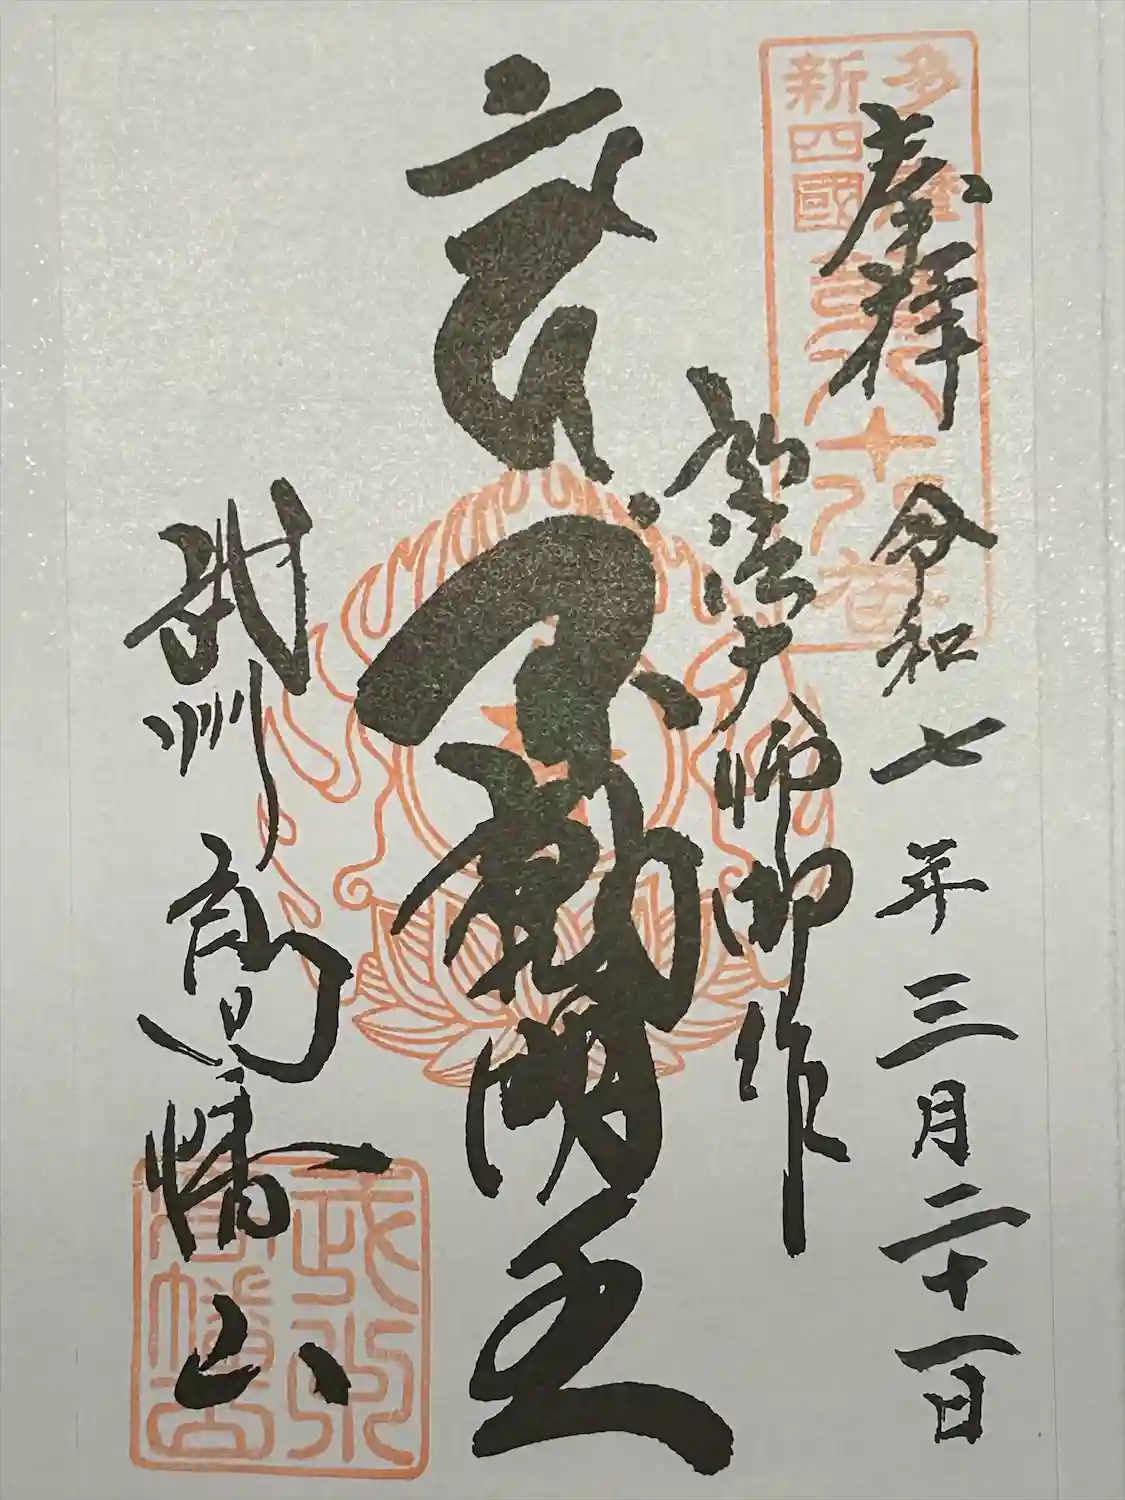 奉拝
令和七年三月二十一日
弘法大師御作
不動明王
武州高幡山
多摩
新四國
第八十八番
武州
高幡山